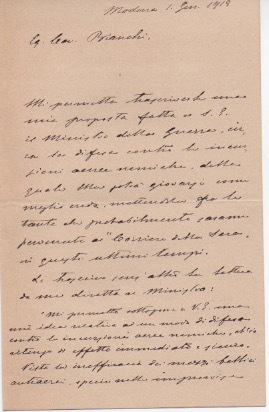 Modena 1. Gen. 1918
Eg. Cav. Bianchi,
Mi permetto trascriverle una
mia proposta fatta a S. E.
il Ministro della Guerra, cir,
ca la difesa contro le incur,
sioni aeree nemiche, della
quale Ella potrà giovarsi come
meglio creda, mettendola fra le
tante che probabilmente saranno
pervenute al "Corriere della Sera,
in questi ultimi tempi.
Le trascrivo senz'altro la lettera
da me diretta al Ministro:
"Mi permetto sottoporre a V. E. una
idea relativa ad un modo di difesa
contro le incursioni aeree nemiche, ch'io
ritengo di effetto immediato e sicuro.
Vista la inefficacia dei mezzi bellici
antiaerei, specie nelle improvvise